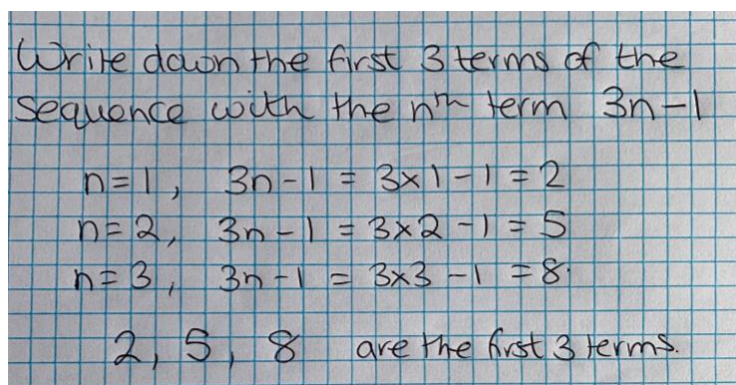 Write down the first 3 terms of the
sequence with the nth term 3n-1
n=1, 3n-1 = 3×1-1=2
n=2, 3n-1 = 3×2-1=5
n=3, 3n-1 = 3×3-1=8.
2, 5, 8 are the first 3 terms.